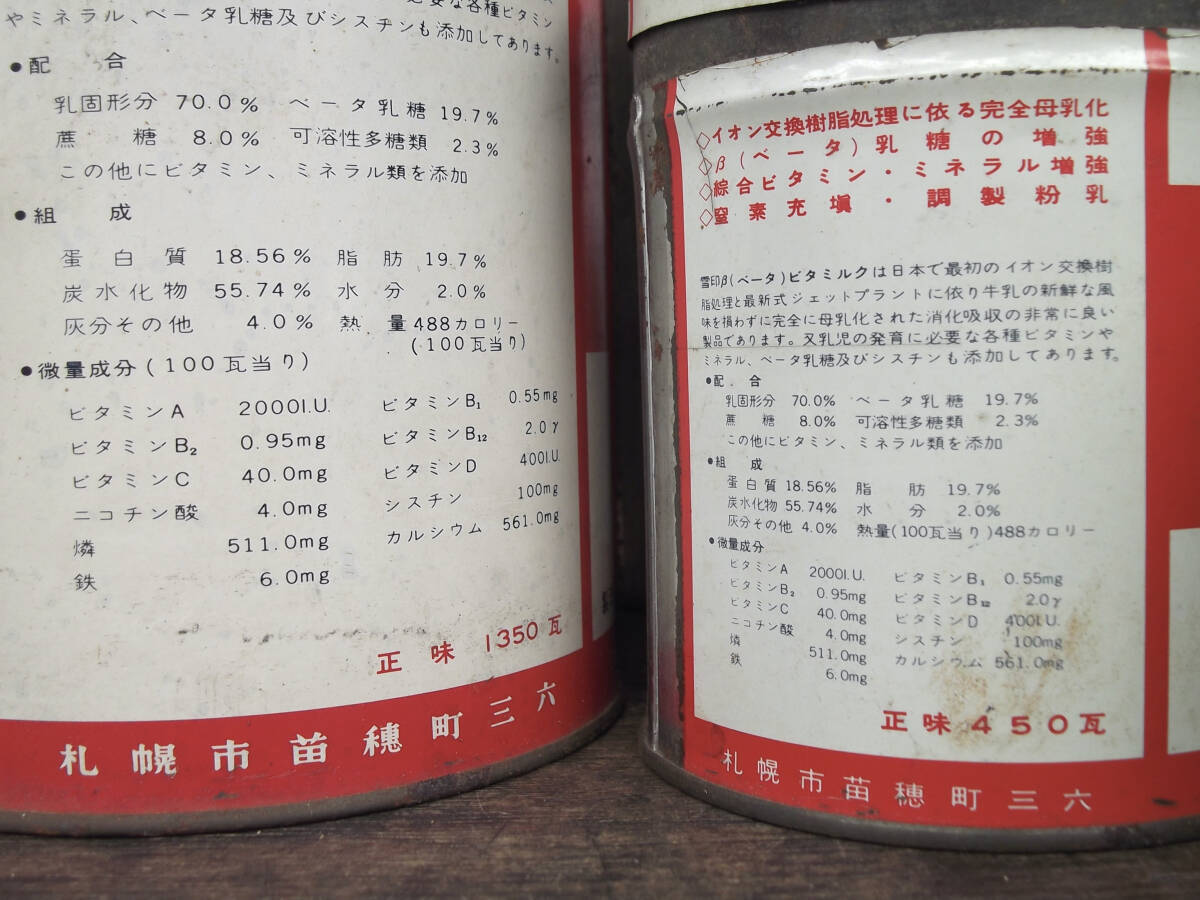 要な各種ビタミン
やミネラル、ベータ乳糖及びシスチンも添加してあります。
●配 合
乳固形分 70.0% ベータ乳糖 19.7%
蔗 糖 8.0% 可溶性多糖類 2.3%
この他にビタミン、ミネラル類を添加
●組 成
蛋白質 18.56% 脂肪 19.7%
炭水化物 55.74% 水分 2.0%
灰分その他 4.0% 熱量 488カロリー
(100瓦当り)
●微量成分(100瓦当り)
ビタミンA 2000I.U. ビタミンB₁ 0.55mg
ビタミンB₂ 0.95mg ビタミンB₁₂ 2.0γ
ビタミンC 40.0mg ビタミンD 400I.U.
ニコチン酸 4.0mg シスチン 100mg
燐 511.0mg カルシウム 561.0mg
鉄 6.0mg
正味 1350瓦
札幌市苗穂町三六
◇イオン交換樹脂処理に依る完全母乳化
◇β(ベータ)乳糖の増強
◇綜合ビタミン・ミネラル増強
◇窒素充塡・調製粉乳
雪印β(ベータ)ビタミルクは日本で最初のイオン交換樹
脂処理と最新式ジェットプラントに依り牛乳の新鮮な風
味を損わずに完全に母乳化された消化吸収の非常に良い
製品であります。又乳児の発育に必要な各種ビタミンや
ミネラル、ベータ乳糖及びシスチンも添加してあります。
●配 合
乳固形分 70.0% ベータ乳糖 19.7%
蔗 糖 8.0% 可溶性多糖類 2.3%
この他にビタミン、ミネラル類を添加
●組 成
蛋白質 18.56% 脂肪 19.7%
炭水化物 55.74% 水分 2.0%
灰分その他 4.0% 熱量(100瓦当り)488カロリー
●微量成分
ビタミンA 2000I.U. ビタミンB₁ 0.55mg
ビタミンB₂ 0.95mg ビタミンB₁₂ 2.0γ
ビタミンC 40.0mg ビタミンD 400I.U.
ニコチン酸 4.0mg シスチン 100mg
燐 511.0mg カルシウム 561.0mg
鉄 6.0mg
正味450瓦
札幌市苗穂町三六